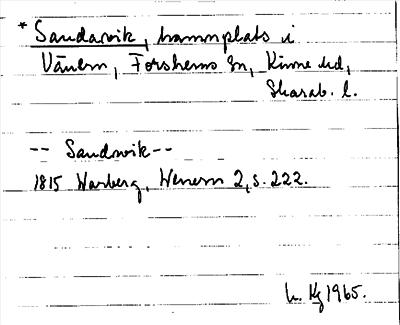 * Sandarvik, hamnplats i
Vänern, Forshems sn, Kinne hd,
Skarab. l.
-- Sandwik --
1815 Warberg, Wenern 2, s. 222.
Kg 1965.